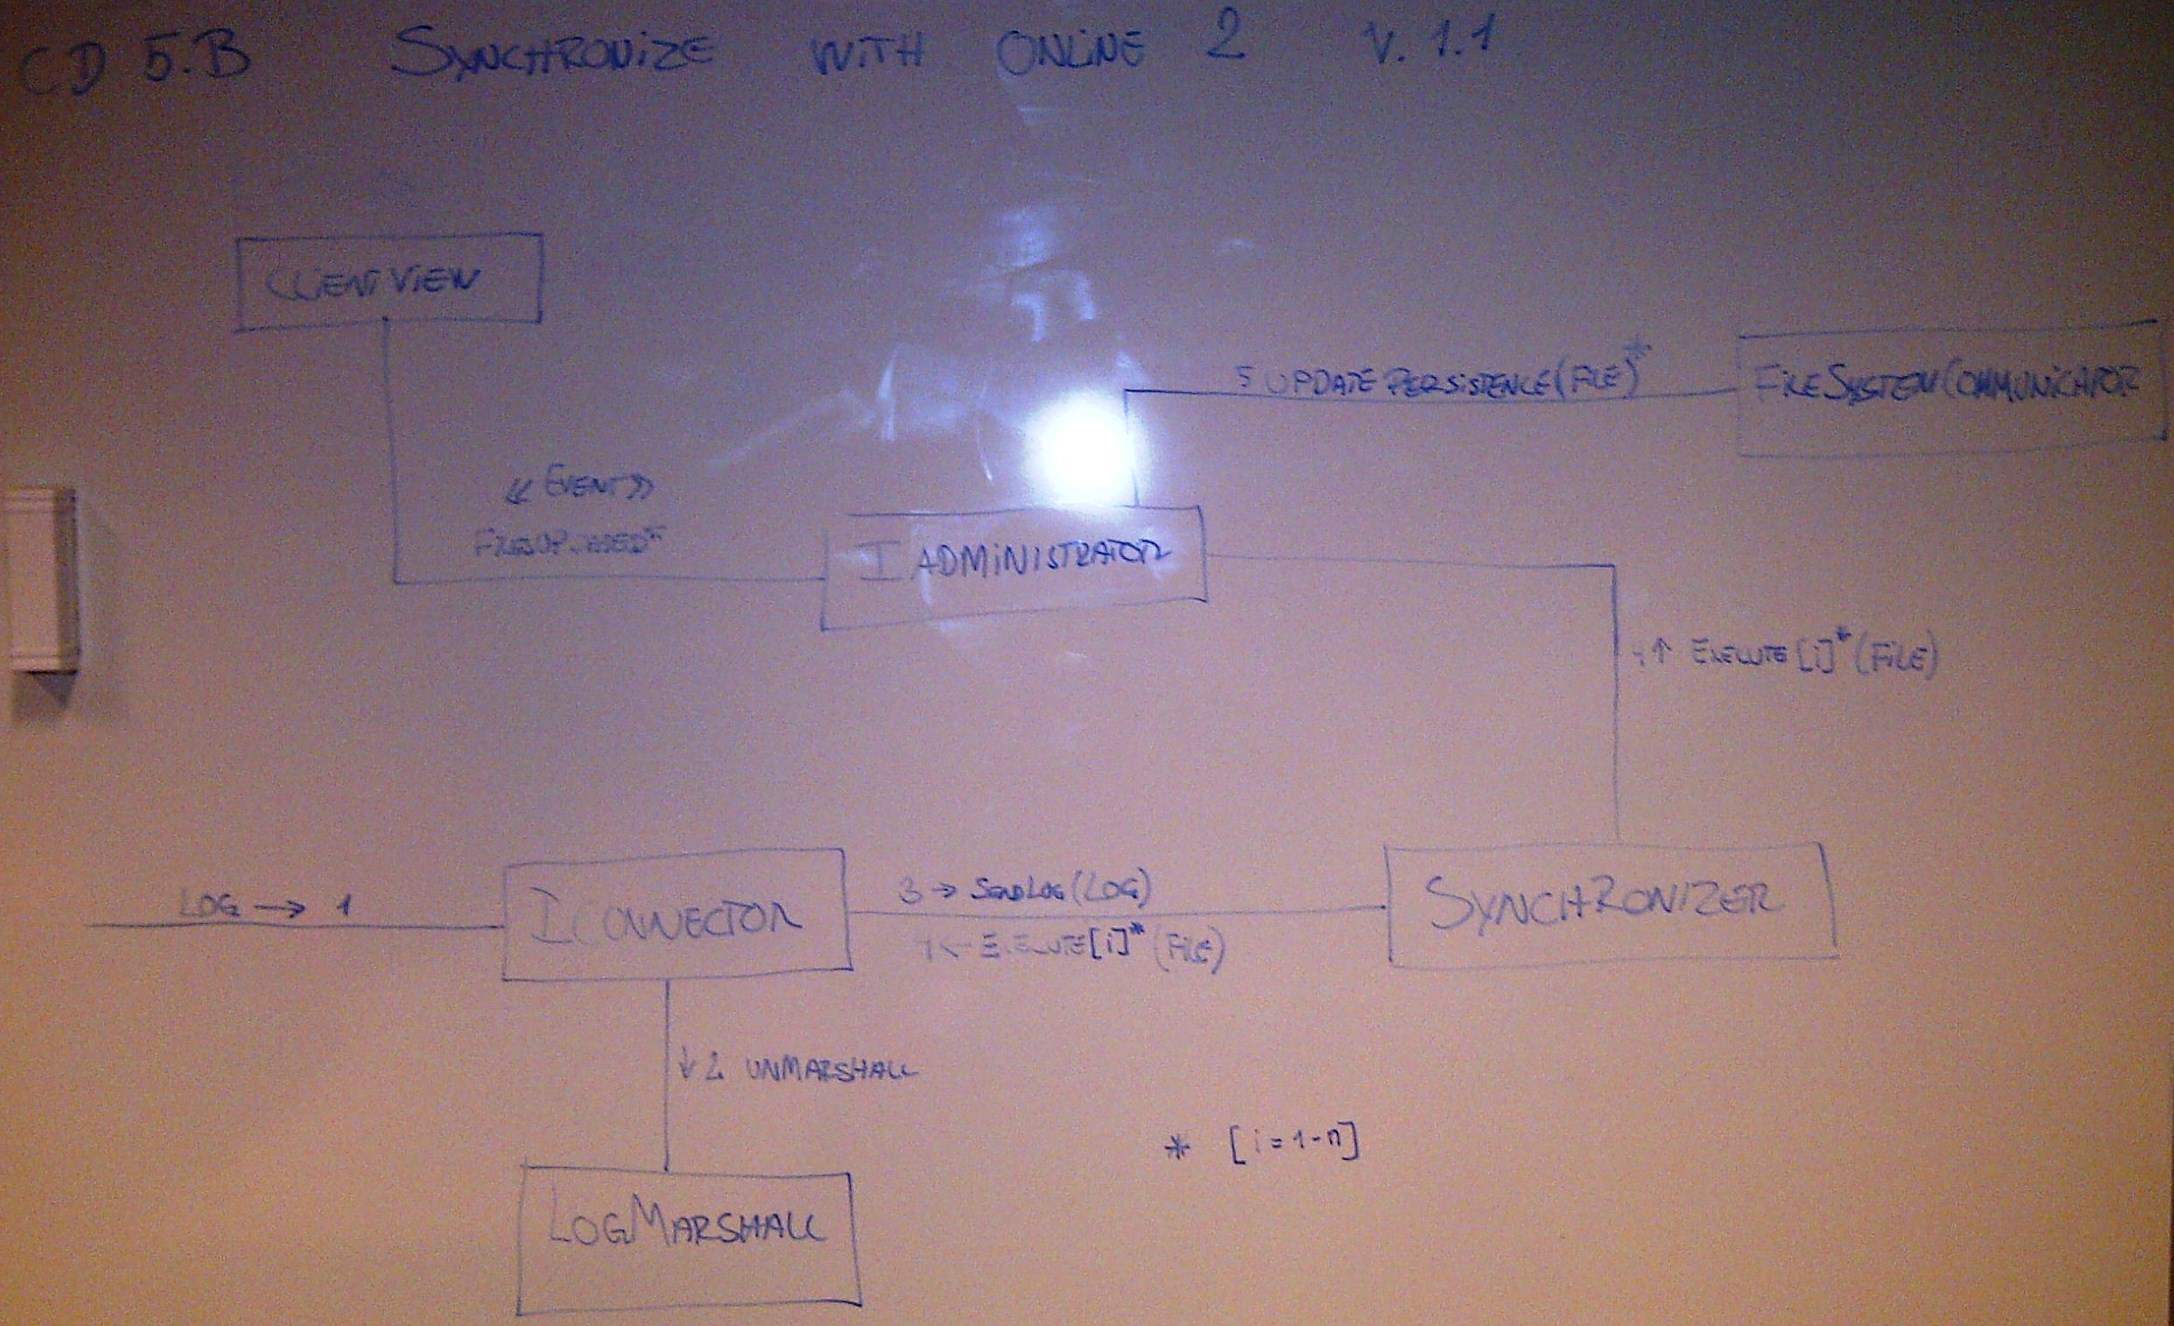 CD 5.B SYNCHRONIZE WITH ONLINE 2 V. 1.1
CLIENTVIEW
5 UPDATE PERSISTENCE (FILE)*
FILESYSTEMCOMMUNICATOR
<< EVENT >>
IADMINISTRATOR
4 ↑ EXECUTE [i]* (FILE)
LOG → 1
ICONNECTOR
3 → SENDLOG (LOG)
← EXECUTE [i]* (FILE)
SYNCHRONIZER
↓ 2 UNMARSHALL
* [i = 1 - n]
LOGMARSHALL